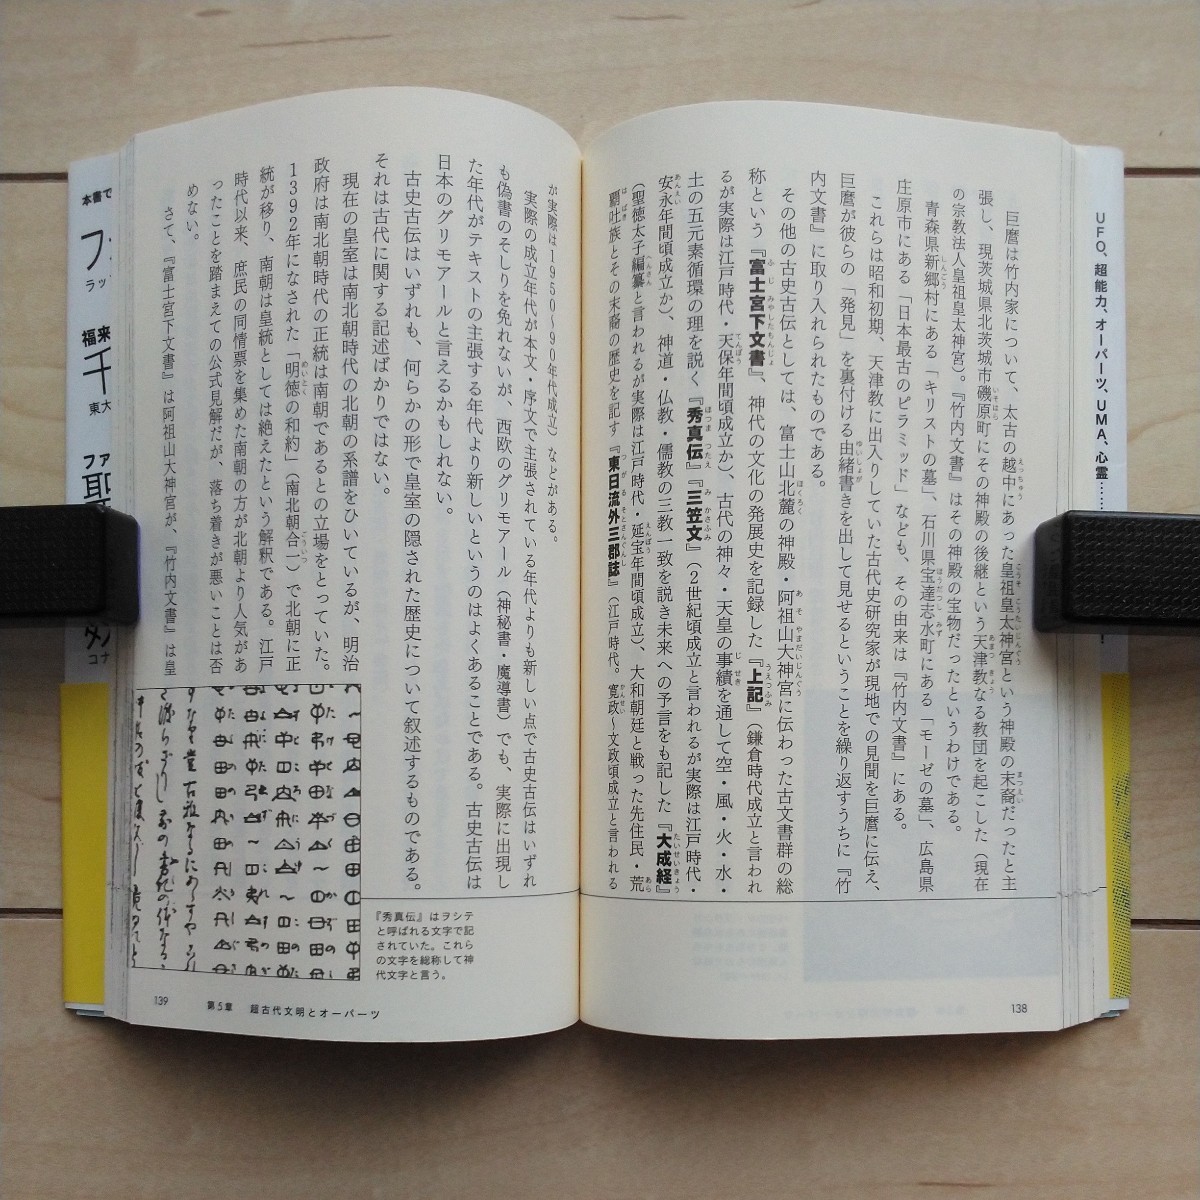 巨麿は竹内家について、太古の越中にあった皇祖皇太神宮という神殿の末裔だったと主
張し、現茨城県北茨城市磯原町にその神殿の後継という天津教なる教団を起こした（現在
の宗教法人皇祖皇太神宮）。『竹内文書』はその神殿の宝物だったというわけである。
青森県新郷村にある「キリストの墓」、石川県宝達志水町にある「モーゼの墓」、広島県
庄原市にある「日本最古のピラミッド」なども、その由来は『竹内文書』にある。
これらは昭和初期、天津教に出入りしていた古代史研究家が現地での見聞を巨麿に伝え、
巨麿が彼らの「発見」を裏付ける由緒書きを出して見せるということを繰り返すうちに『竹
内文書』に取り入れられたものである。
その他の古史古伝としては、富士山北麓の神殿・阿祖山大神宮に伝わった古文書群の総
称という『富士宮下文書』、神代の文化の発展史を記録した『上記』（鎌倉時代成立と言われ
るが実際は江戸時代・天保年間頃成立か）、古代の神々・天皇の事績を通して空・風・火・水・
土の五元素循環の理を説く『秀真伝』『三笠文』（２世紀頃成立と言われるが実際は江戸時代・
安永年間頃成立か）、神道・仏教・儒教の三教一致を説き未来への予言をも記した『大成経』
（聖徳太子編纂と言われるが実際は江戸時代・延宝年間頃成立）、大和朝廷と戦った先住民・荒
覇吐族とその末裔の歴史を記す『東日流外三郡誌』（江戸時代。寛政〜文政頃成立と言われる
138
が実際は１９５０〜９０年代成立）などがある。
実際の成立年代が本文・序文で主張されている年代よりも新しい点で古史古伝はいずれ
も偽書のそしりを免れないが、西欧のグリモアール（神秘書・魔導書）でも、実際に出現し
た年代がテキストの主張する年代より新しいというのはよくあることである。古史古伝は
日本のグリモアールと言えるかもしれない。
古史古伝はいずれも、何らかの形で皇室の隠された歴史について叙述するものである。
それは古代に関する記述ばかりではない。
現在の皇室は南北朝時代の北朝の系譜をひいているが、明治
政府は南北朝時代の正統は南朝であるとの立場をとっていた。
１３９２年になされた「明徳の和約」（南北朝合一）で北朝に正
統が移り、南朝は皇統としては絶えたという解釈である。江戸
時代以来、庶民の同情票を集めた南朝の方が北朝より人気があ
ったことを踏まえての公式見解だが、落ち着きが悪いことは否
めない。
さて、『富士宮下文書』は阿祖山大神宮が、『竹内文書』は皇
『秀真伝』はヲシテ
と呼ばれる文字で記
されていた。これら
の文字を総称して神
代文字と言う。
139
第5章 超古代文明とオーパーツ
UFO、超能力、オーパーツ、UMA、心霊
本書で
ラッ
福来
千
東大
ファ
コナ